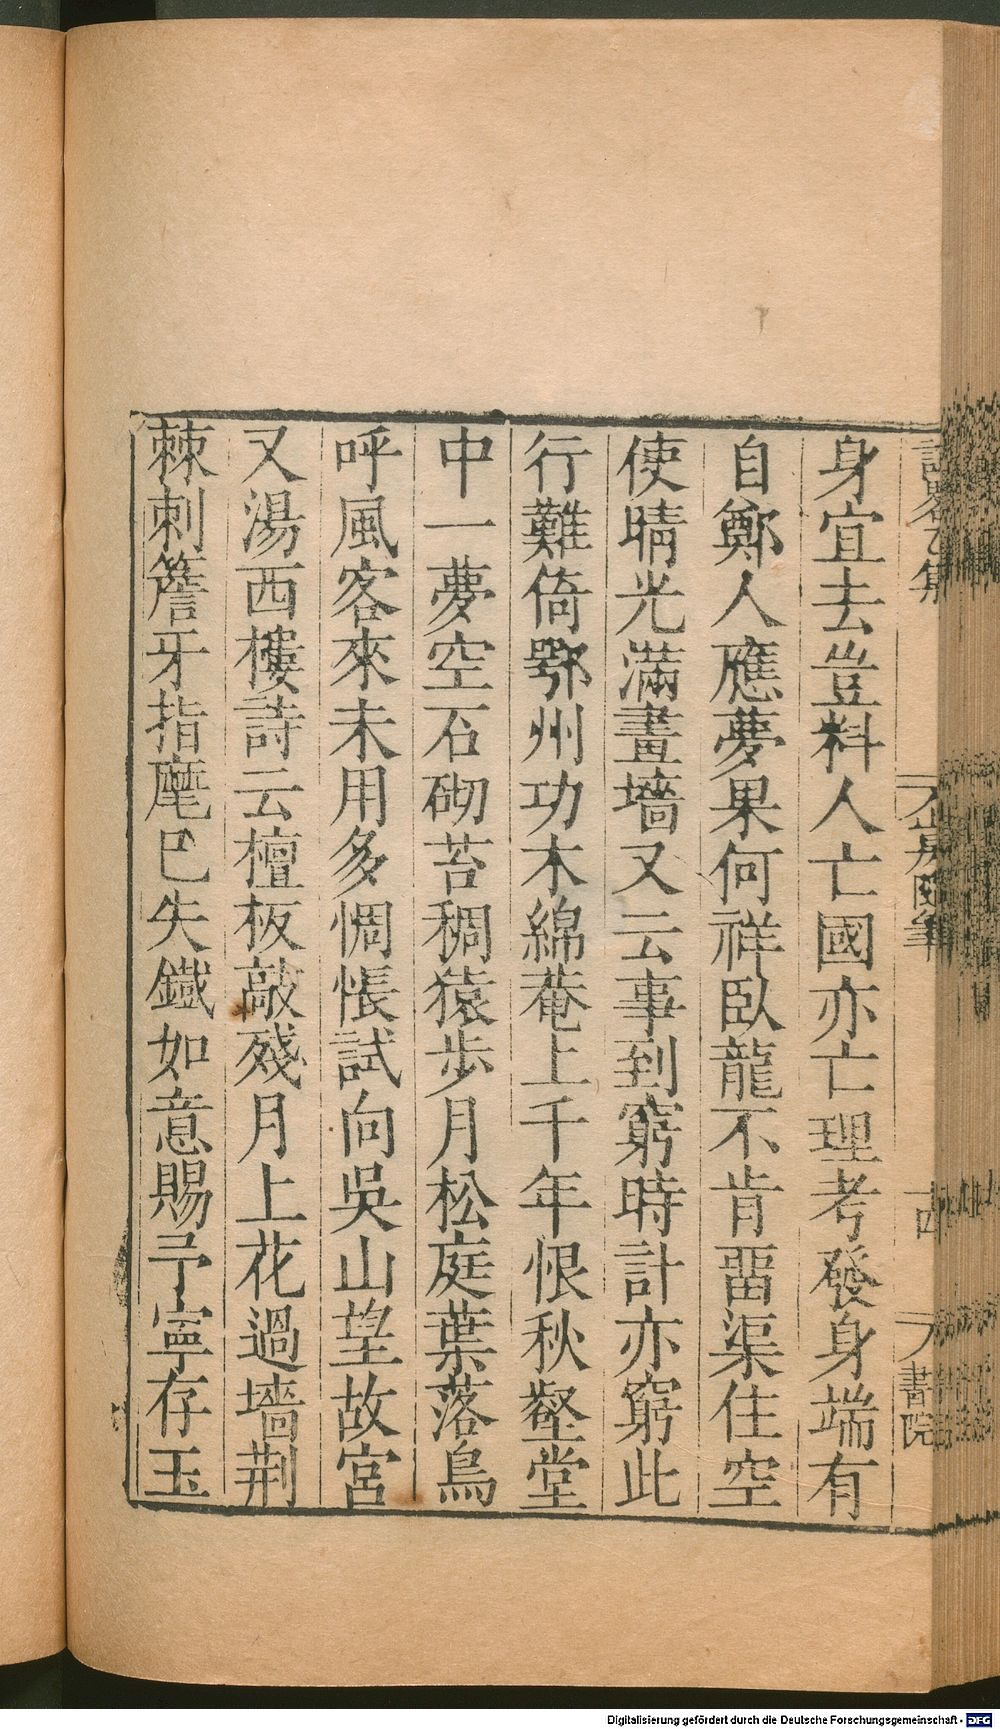 身宜去豈料人亡國亦亡理考發身端有
自鄭人應夢果何祥臥龍不肯畱渠住空
使晴光滿畫墻又云事到窮時計亦窮此
行難倚鄂州功木綿菴上千年恨秋壑堂
中一夢空石砌苔稠猿步月松庭葉落鳥
呼風客來未用多惆悵試向吳山望故宮
又湯西樓詩云檀板敲殘月上花過墻荆
棘刺簷牙指麾巳失鐵如意賜予寧存玉
書院
Digitalisierung gefördert durch die Deutsche Forschungsgemeinschaft - DFG